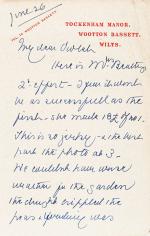 June 26
TOCKENHAM MANOR,
WOOTTON BASSETT,
WILTS.
My dear
Here is Mrs Beatty
2nd effort - I fear it wont be
as successful as the
first - she made 18
This is no jersey - & the best
part the photo at 3.
We couldn't have worse
weather in the garden
the drought crippled the
peas & was